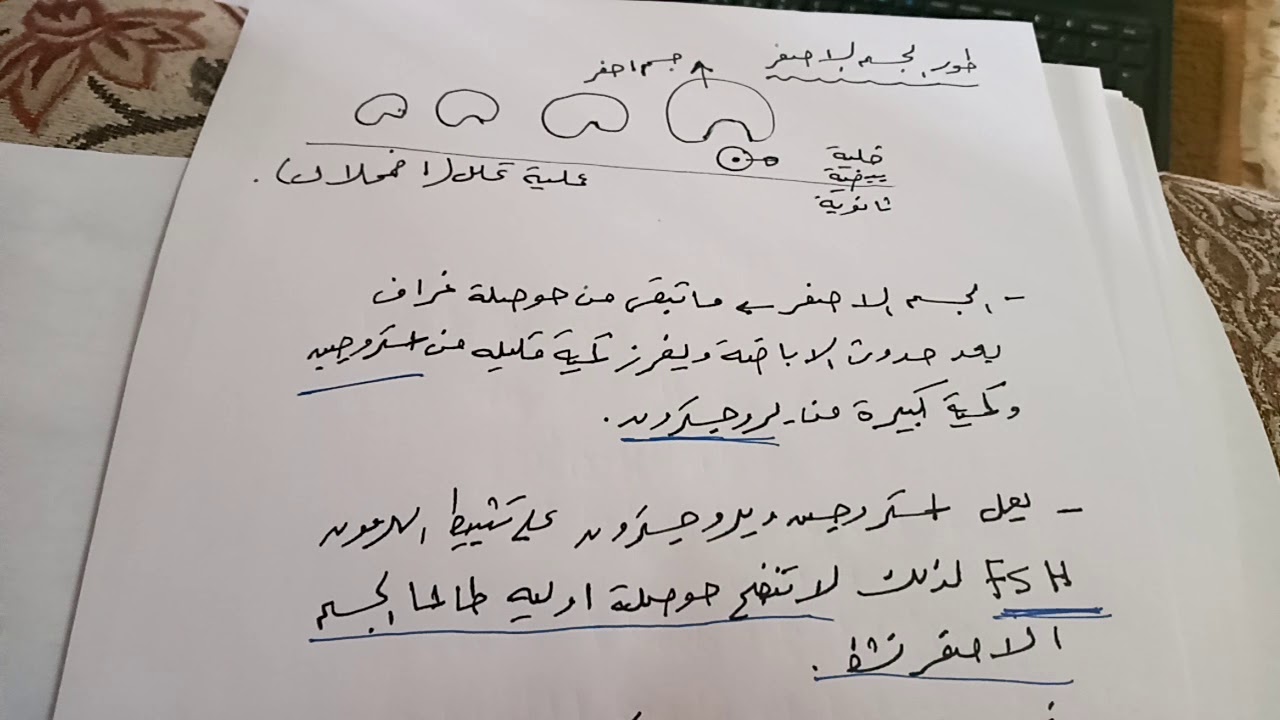 طور الجسم الاصفر
جسم اصفر
خلية
بيضية
ثانوية
عملية تحلل (اضمحلال).
- الجسم الاصفر ← ماتبقى من حوصلة غراف
بعد حدوث الاباضة ويفرز كمية قليله من استروجين
وكمية كبيرة من بروجسترون.
- يعمل استروجين وبروجسترون على تثبيط الهرمون
FSH لذلك لا تنضج حوصلة اوليه طالما الجسم
الاصفر نشط.